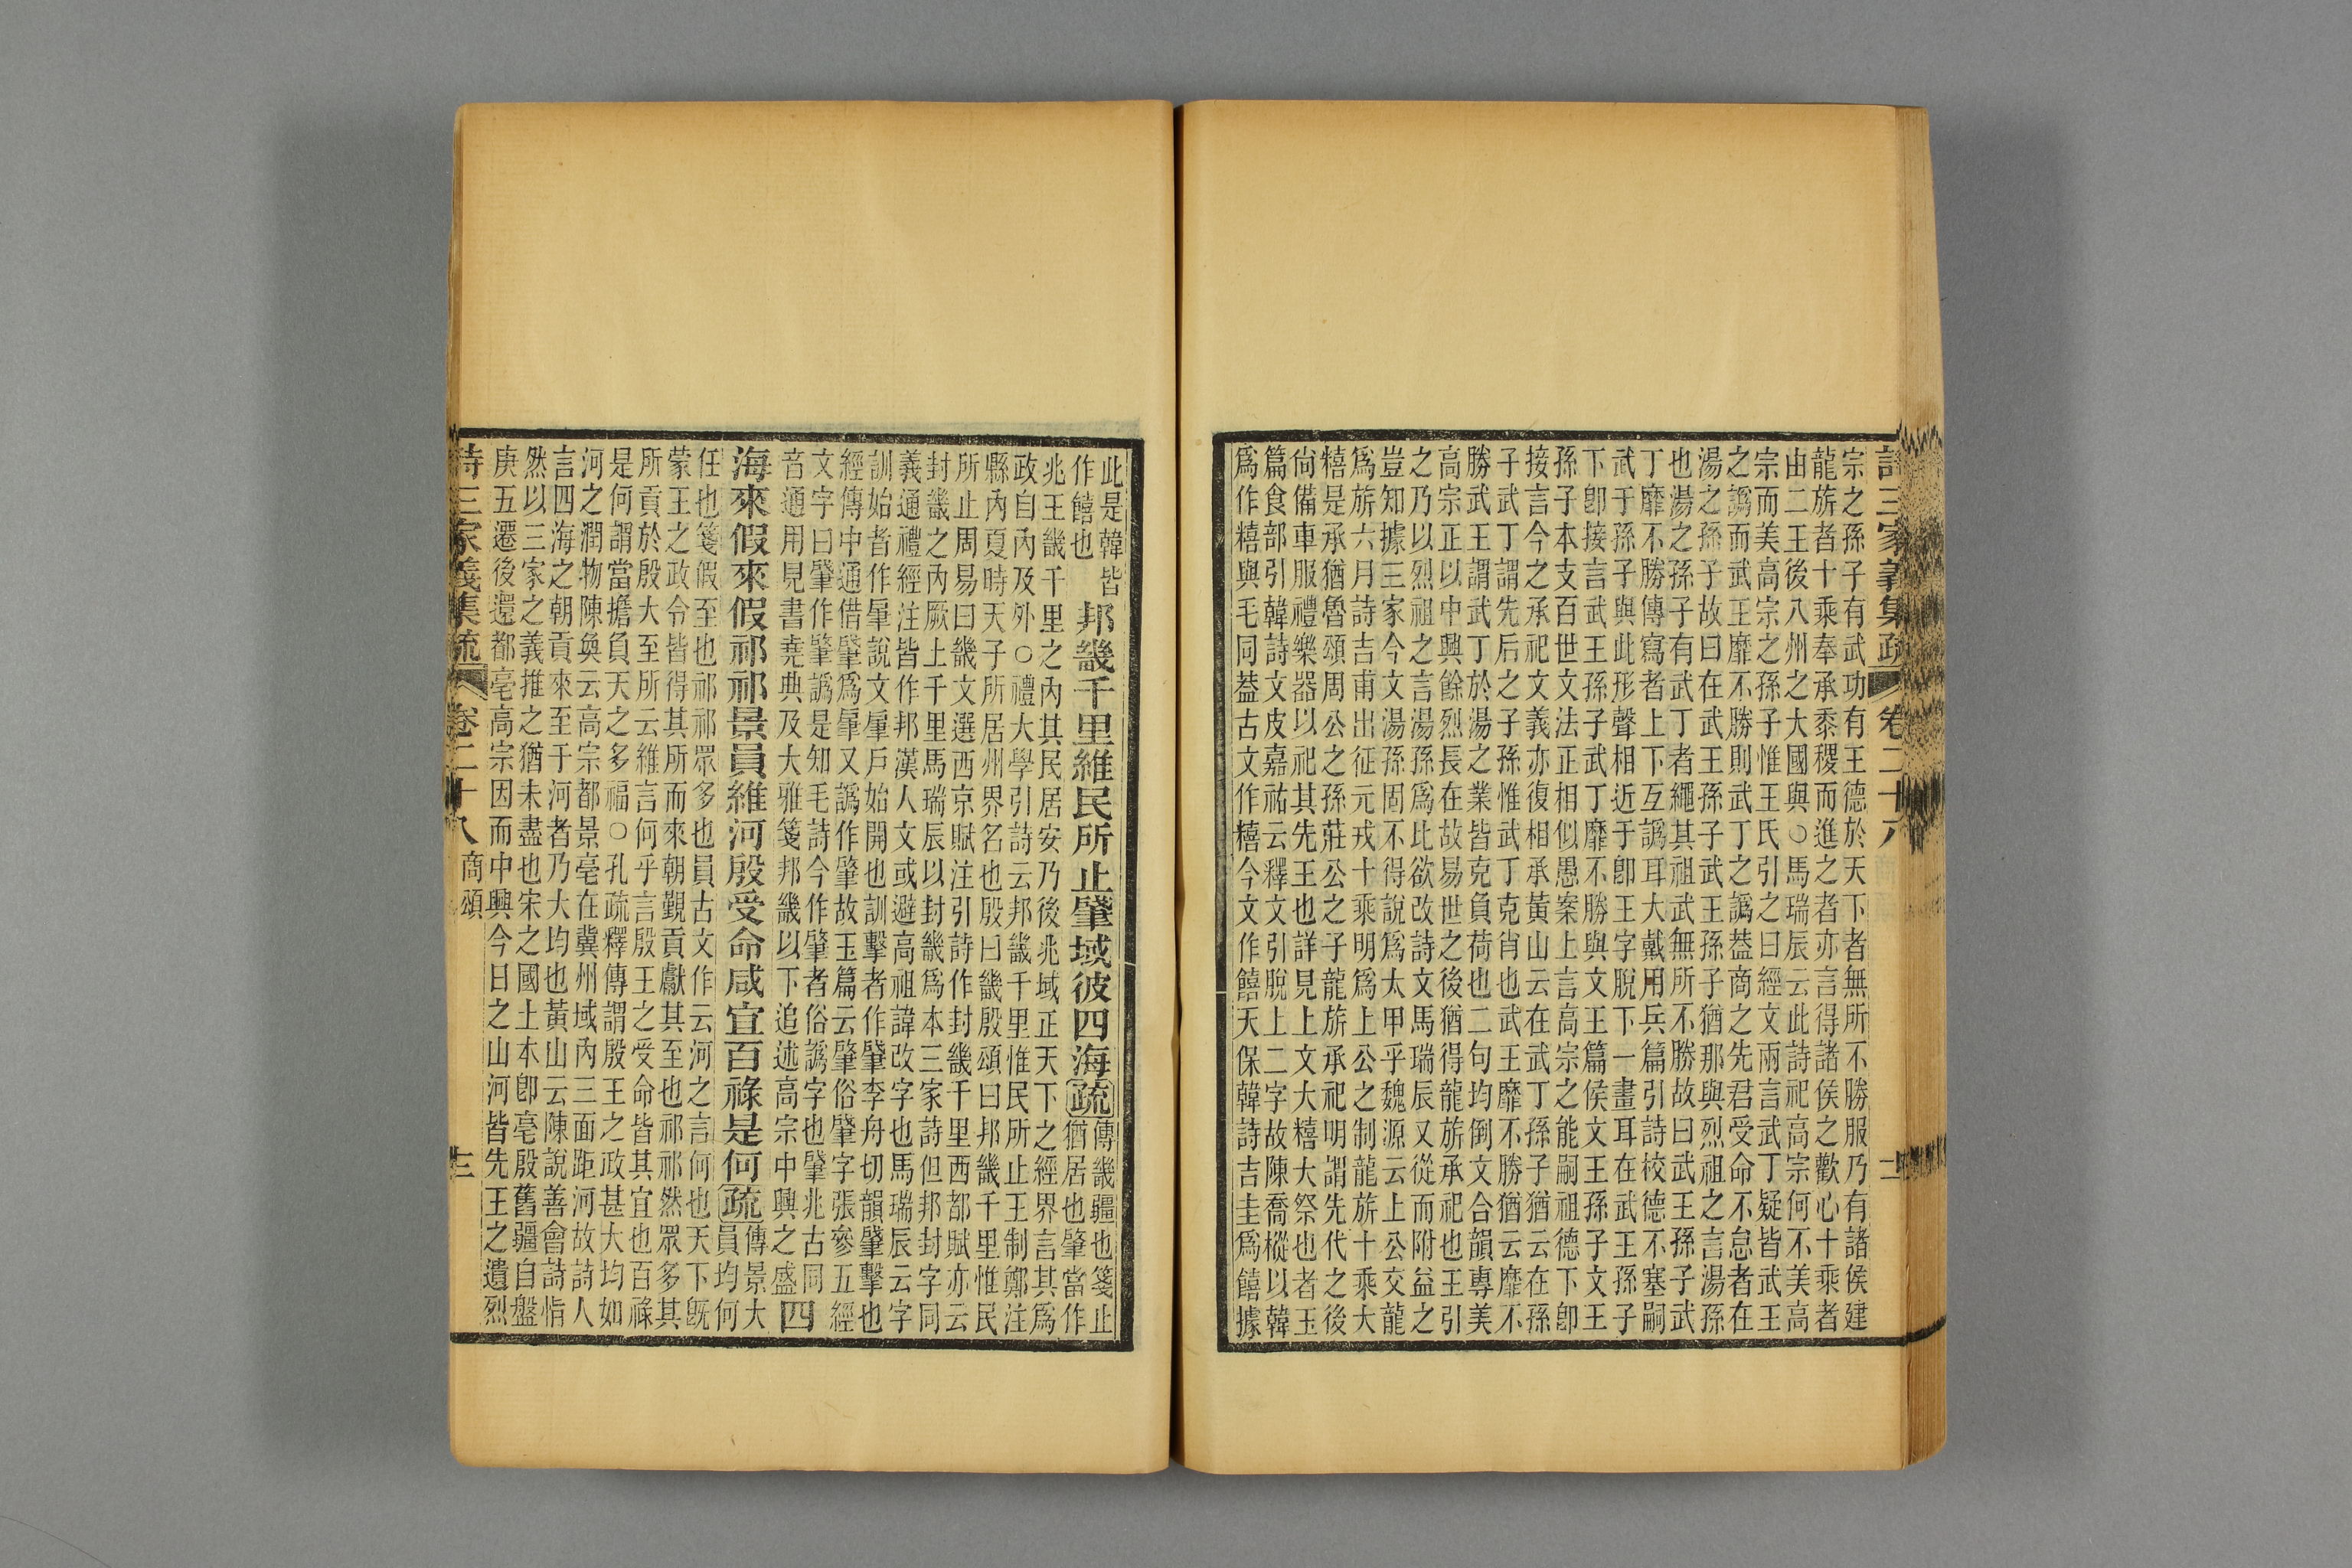 詩三家義集疏 卷二十八 十二
宗之孫子有武功有王德於天下者無所不勝服乃有諸侯建
龍旂者十乘奉承黍稷而進之者亦言得諸侯之歡心十乘者
由二王後八州之大國與○馬瑞辰云此詩祀高宗何不美高
宗而美高宗之孫子惟王氏引之曰經文兩言武丁疑皆武王
之譌而武王靡不勝則武丁之譌葢商之先君受命不怠者在
湯之孫子故曰在武王孫子武王孫子猶那與烈祖之言湯孫
也湯之孫子有武丁者繩其祖武無所不勝故曰武王孫子武
丁靡不勝傳寫者上下互譌耳大戴用兵篇引詩校德不塞嗣
武于孫子與此形聲相近于卽王字脫下一畫耳在武王孫子
下卽接言武王孫子武丁靡不勝與文王篇侯文王孫子文王
孫子本支百世文法正相似愚案上言高宗之能嗣祖德下卽
接言今之承祀文義亦復相承黃山云在武丁孫子猶云在孫
子武丁謂先后之子孫惟武丁克肖也武王靡不勝猶云靡不
勝武王謂武丁於湯之業皆克負荷也二句均倒文合韻專美
高宗正以中興餘烈長在故易世之後猶得龍旂承祀也王引
之乃以烈祖之言湯孫爲比欲改詩文馬瑞辰又從而附益之
豈知據三家今文湯孫固不得說爲太甲乎魏源云上公交龍
爲旂六月詩吉甫出征元戎十乘明爲上公之制龍旂十乘大
糦是承猶魯頌周公之孫莊公之子龍旂承祀明謂先代之後
尙備車服禮樂器以祀其先王也詳見上文大糦大祭也者玉
篇食部引韓詩文皮嘉祐云釋文引脫上二字故陳喬樅以韓
爲作糦與毛同葢古文作糦今文作饎天保韓詩吉圭爲饎據
此是韓皆
作饎也
邦畿千里維民所止肇域彼四海疏傳畿疆也箋止
猶居也肇當作
兆王畿千里之內其民居安乃後兆域正天下之經界言其爲
政自內及外○禮大學引詩云邦畿千里惟民所止王制鄭注
縣內夏時天子所居州界名也殷曰畿殷頌曰邦畿千里惟民
所止周易曰畿文選西京賦注引詩作封畿千里西都賦亦云
封畿之內厥土千里馬瑞辰以封畿爲本三家詩但邦封字同
義通禮經注皆作邦漢人文或避高祖諱改字也馬瑞辰云字
訓始者作肈說文肈戶始開也訓擊者作肇李舟切韻肇擊也
經傳中通借肇爲肈又譌作肇故玉篇云肇俗肈字張參五經
文字曰肈作肇譌是知毛詩今作肇者俗譌字也肈兆古同
音通用見書堯典及大雅箋邦畿以下追述高宗中興之盛
四
海來假來假祁祁景員維河殷受命咸宜百祿是何疏傳景大
員均何
任也箋假至也祁祁眾多也員古文作云河之言何也天下旣
蒙王之政令皆得其所而來朝覲貢獻其至也祁祁然眾多其
所貢於殷大至所云維言何乎言殷王之受命皆其宜也百祿
是何謂當擔負天之多福○孔疏釋傳謂殷王之政甚大均如
河之潤物陳奐云高宗都景亳在冀州域內三面距河故詩人
言四海之朝貢來至于河者乃大均也黃山云陳說善會詩恉
然以三家之義推之猶未盡也宋之國土本卽亳殷舊疆自盤
庚五遷後還都亳高宗因而中興今日之山河皆先王之遺烈
詩三家義集疏 卷二十八 商頌 十三